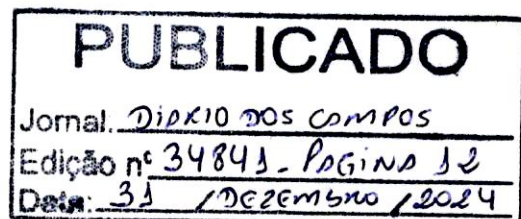 PUBLICADO
Jornal. DiARIO DOS CAMPOS
Edição nº 34841 - PAGiNA 12
Data: 31 / DEZEMBRO / 2024